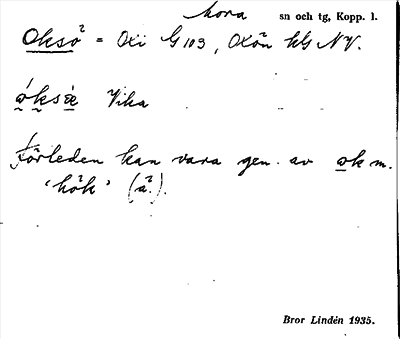 Mora sn och tg, Kopp. l.
Oksö² = Oxi G 103, Oxön kG NV.
ǿksǣ Vika
Förleden kan vara gen. av øk m.
'hök' (a²).
Bror Lindén 1935.